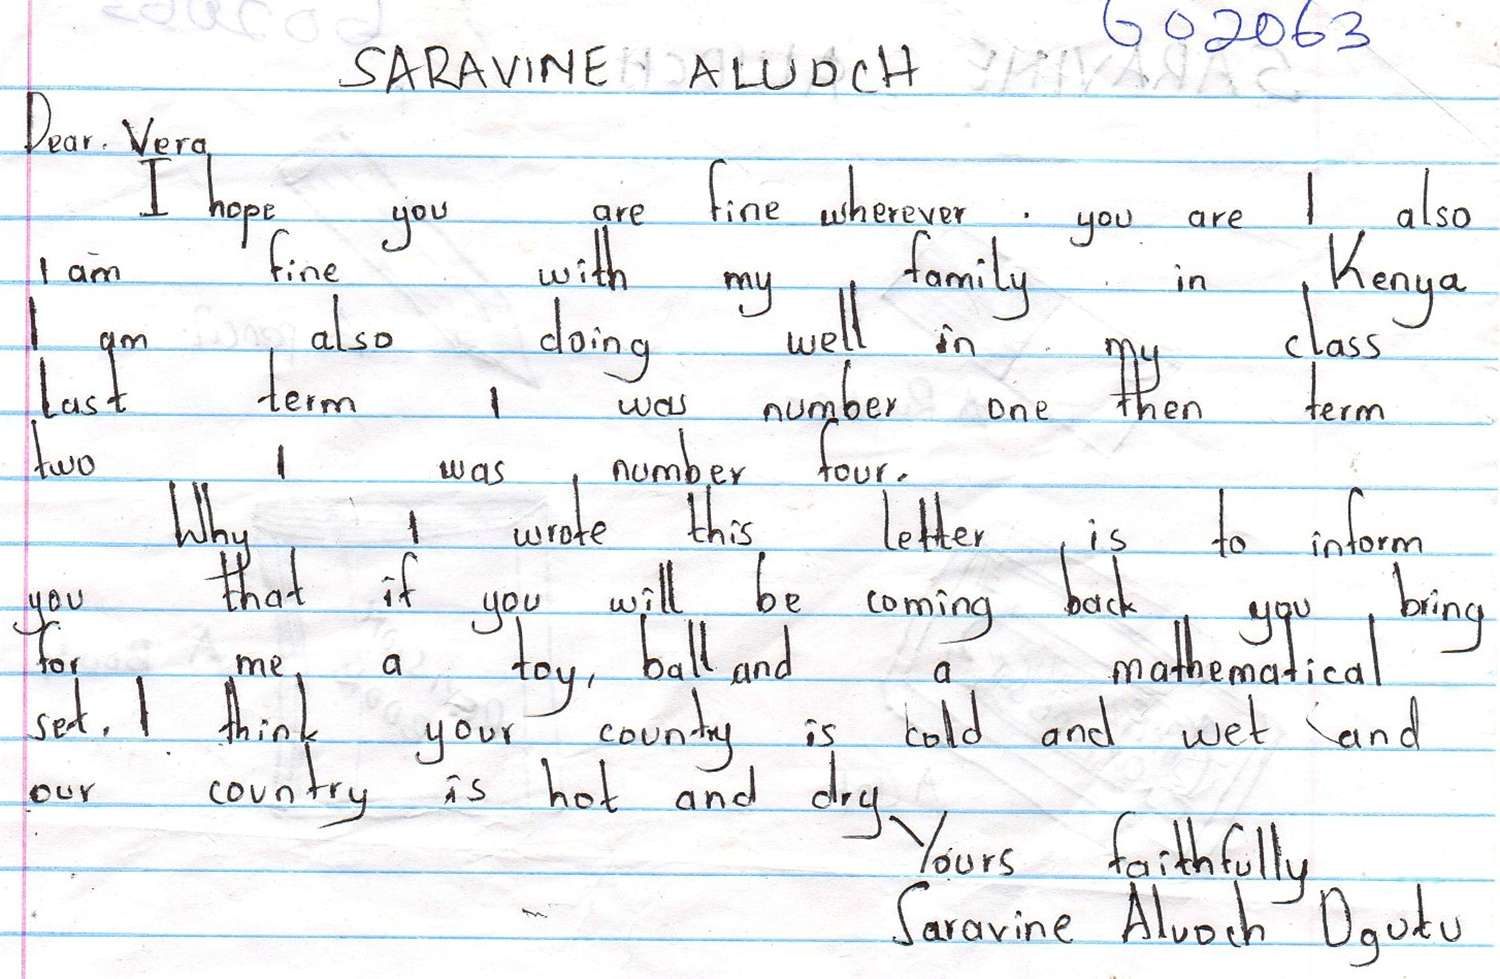 602063
SARAVINE ALUOCH
Dear. Vera
I hope you are fine wherever. you are I also
I am fine with my family in Kenya
I am also doing well in my class
Last term I was number one then term
two I was number four.
Why I wrote this letter is to inform
you that if you will be coming back you bring
for me a toy, ball and a mathematical
set. I think your country is cold and wet and
our country is hot and dry
Yours faithfully
Saravine Aluoch Ogutu